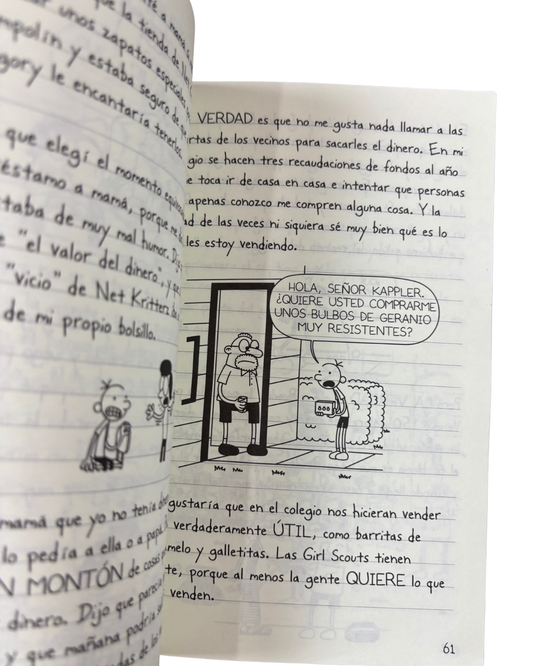 a mamá
la tienda de
unos zapatos especiales
y estaba seguro de
le encantaría tenerlos
que elegí el momento
a mamá, porque
de muy mal humor.
"el valor del dinero", y
"vicio" de Net Kritters
de mi propio bolsillo.
mamá que yo no tenía
lo pedía a ella o a papá
MONTÓN de cosas
dinero. Dijo que
y que mañana podría
VERDAD es que no me gusta nada llamar a las
de los vecinos para sacarles el dinero. En mi
se hacen tres recaudaciones de fondos al año
toca ir de casa en casa e intentar que personas
apenas conozco me compren alguna cosa. Y la
de las veces ni siquiera sé muy bien qué es lo
les estoy vendiendo.
HOLA, SEÑOR KAPPLER.
¿QUIERE USTED COMPRARME
UNOS BULBOS DE GERANIO
MUY RESISTENTES?
gustaría que en el colegio nos hicieran vender
verdaderamente ÚTIL, como barritas de
y galletitas. Las Girl Scouts tienen
porque al menos la gente QUIERE lo que
venden.
61